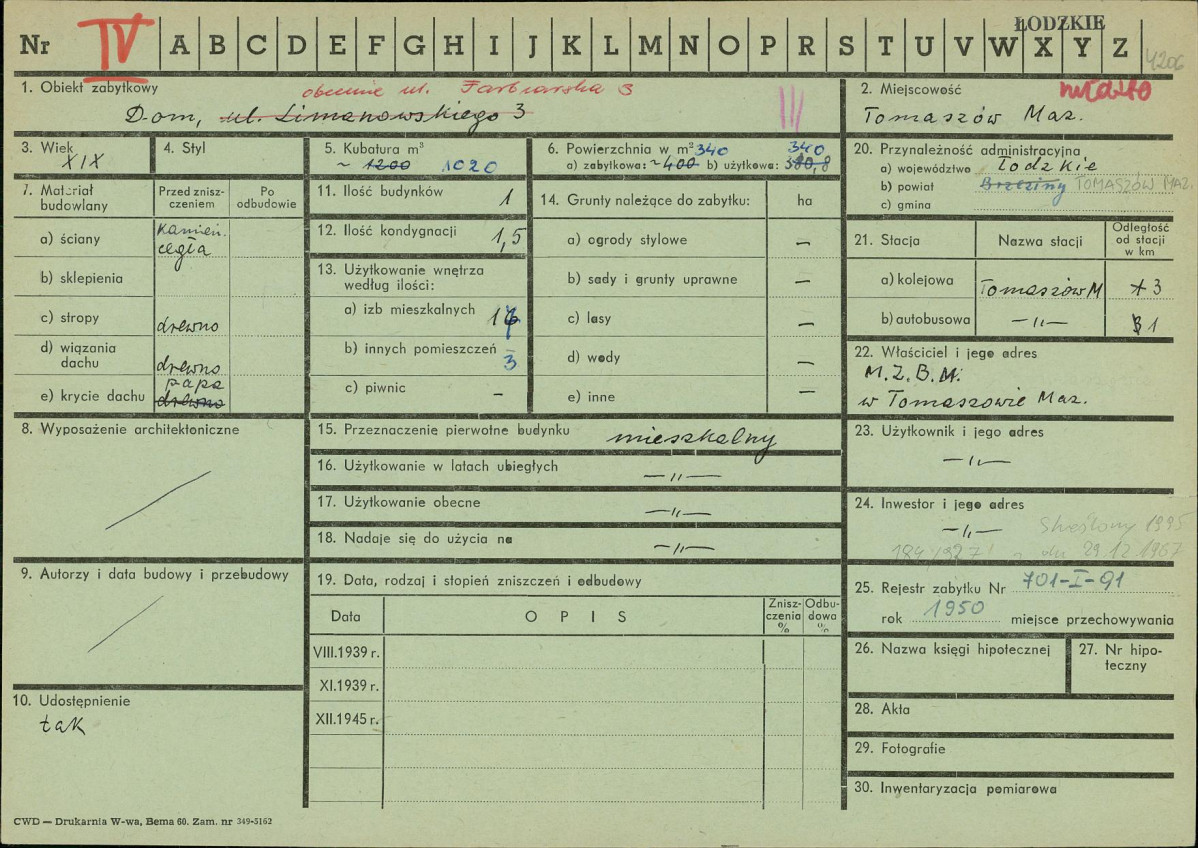 ŁODZKIE
Nr IV A B C D E F G H I J K L M N O P R S T U V W X Y Z
4206
1. Obiekt zabytkowy
obecnie ul. Farbiarska 3
Dom, ul. Limanowskiego 3
III
2. Miejscowość
miasto
Tomaszów Maz.
3. Wiek
XIX
4. Styl
5. Kubatura m³
~ 1200 1020
6. Powierzchnia w m² 340 340
a) zabytkowa: ~400 b) użytkowa: 380,8
20. Przynależność administracyjna
a) województwo Łodzkie
b) powiat Brzeziny TOMASZÓW MAZ.
c) gmina
7. Materiał budowlany
Przed zniszczeniem
Po odbudowie
a) ściany kamień. cegła
b) sklepienia
c) stropy drewno
d) wiązania dachu drewno
e) krycie dachu papa drewno
11. Ilość budynków 1
12. Ilość kondygnacji 1,5
13. Użytkowanie wnętrza
według ilości:
a) izb mieszkalnych 17
b) innych pomieszczeń 3
c) piwnic –
14. Grunty należące do zabytku: ha
a) ogrody stylowe –
b) sady i grunty uprawne –
c) lasy –
d) wody –
e) inne –
21. Stacja
Nazwa stacji
Odległość
od stacji
w km
a) kolejowa Tomaszów M 3
b) autobusowa –"– 1
22. Właściciel i jego adres
M.Z.B.M.
w Tomaszowie Maz.
8. Wyposażenie architektoniczne
15. Przeznaczenie pierwotne budynku mieszkalny
16. Użytkowanie w latach ubiegłych –"–
17. Użytkowanie obecne –"–
18. Nadaje się do użycia na –"–
23. Użytkownik i jego adres
–"–
24. Inwestor i jego adres
–"– Skreślony 1995
dn 29.12.1967
9. Autorzy i data budowy i przebudowy
10. Udostępnienie
tak
19. Data, rodzaj i stopień zniszczeń i odbudowy
Data
O P I S
Zniszczenia
%
Odbudowa
%
VIII.1939 r.
XI.1939 r.
XII.1945 r.
25. Rejestr zabytku Nr 701-I-91
rok 1950 miejsce przechowywania
26. Nazwa księgi hipotecznej
27. Nr hipoteczny
28. Akta
29. Fotografie
30. Inwentaryzacja pomiarowa
CWD — Drukarnia W-wa, Bema 60. Zam. nr 349-5162